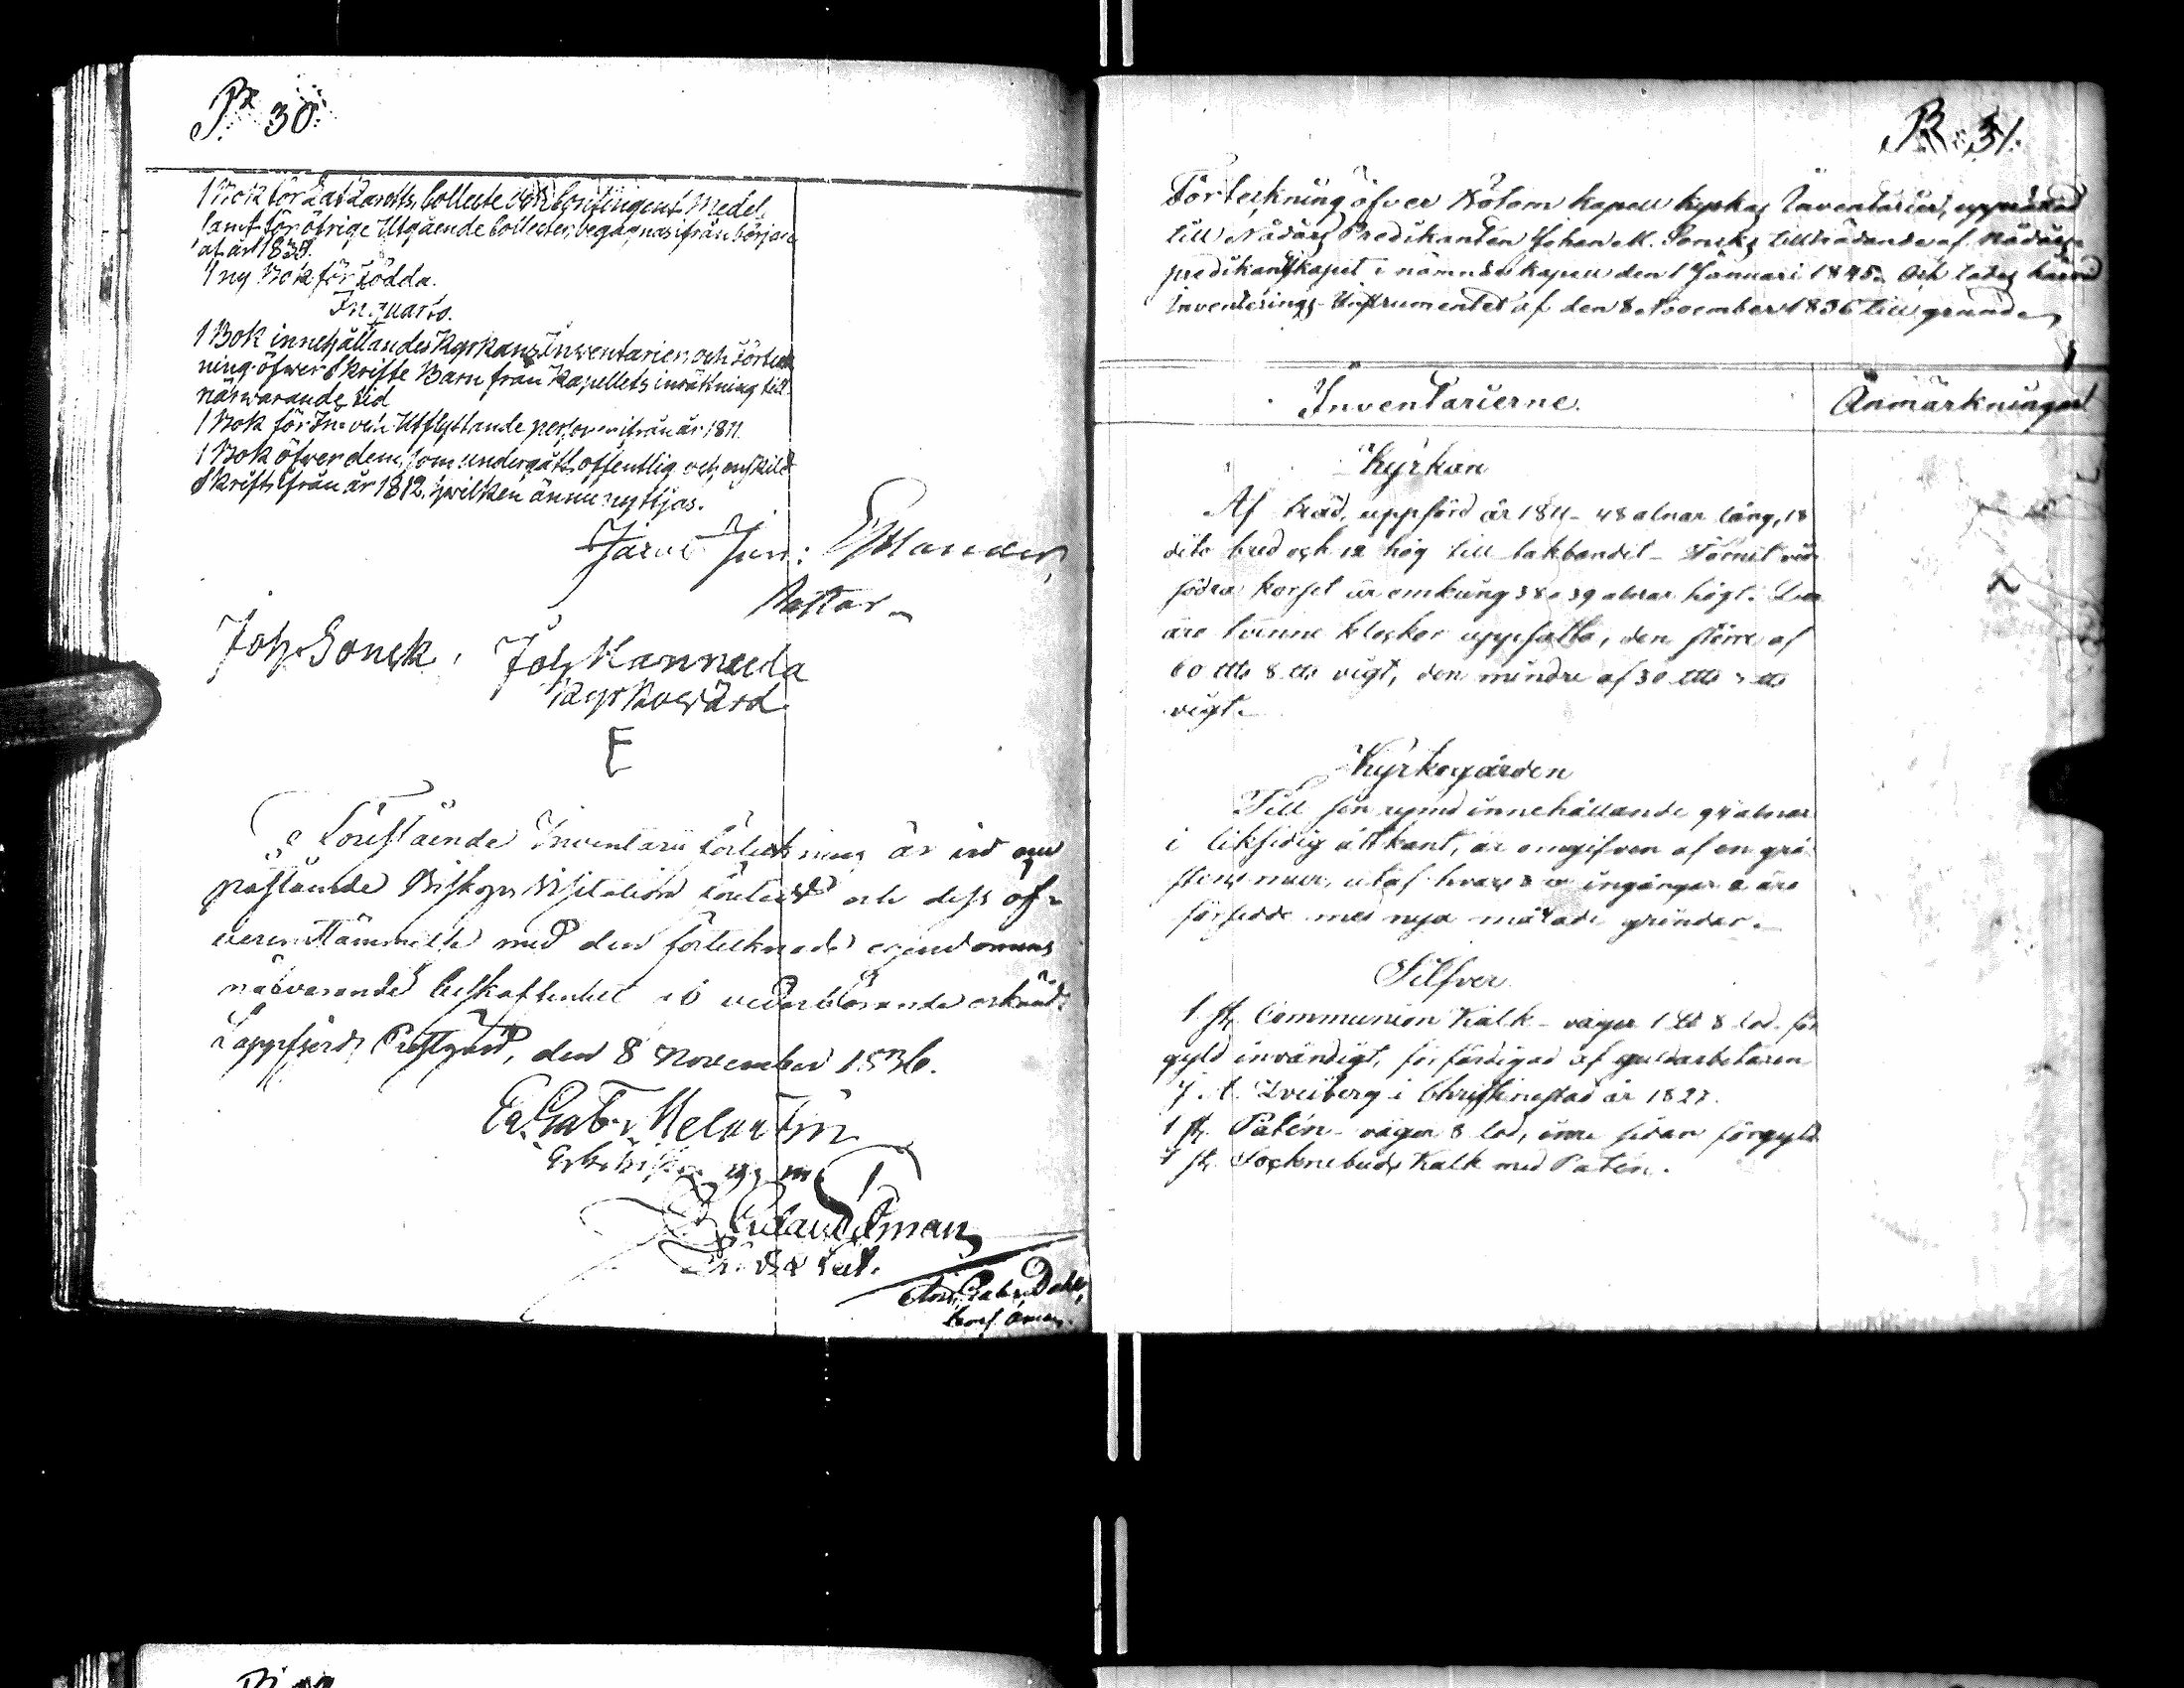 Pag 30.
1 Bok för Lazaretts, Collecte och Contingent Medel,
samt för öfrige Utgående Collecter, begagnas ifrån början
af år 1838.
1 ny Bok för Födda.
In quarto.
1 Bok innehållandes Kyrkans Inventarier och Förteck
ning öfwer Skrifte Barn från Kapellets inrättning till
närwarande tid
1 Bok för In- och Utflyttande personer ifrån år 1811.
1 Bok öfwer dem, som undergått offentlig och enskild
Skrift, från år 1812. hwilken ännu nyttjas.
Jacob Jun: Estlander,
Pastor
Joh. Sonck, Joh. Kannula
Kyrkovärd
E
Förestående Inventarii förteckning är vid nu
påstående Biskops Visitation företedd och dess öf-
verensstämmelse med den förtecknade egendomens
närvarande beskaffenhet af vederbörande erkänd.
Lappfjerds Prestgård, den 8 November 1836.
Er. Gabr. Melartin
Öman
Gabr. Dahl,
Förteckning öfver Bötom kapell kyrkas Inventarier, upprättad
till Nådårs Predikanten Johan M. Soncks tillträdande af Nådårs-
predikantskapet i nämnde kapell den 1 Januari 1845. Och lades härvid
Inventerings-Instrumentet af den 8 November 1836 till grund
Inventarierne. Anmärkningar
Kyrkan
Af träd, uppförd år 1811 - 48 alnar lång, 18
dito bred och 12 hög till takbandet - Tornet vid
södra korset är omkring 38 a 39 alnar högt. Der
äro tvenne klockor uppsatta, den större af
vigt, den mindre af 30
vigt.
Kyrkogården
Till sin rymd innehållande 94 alnar
i liksidig åttkant, är omgifven af en grå
stens mur, utaf hvars 3 ingångar 2 äro
försedde med nya målade grindar.
Silfver
1 st. Communion Kalk - väger 1 ℔ 8 lod. för
gyld invändigt, förfärdigad af guldarbetaren
J. A. Dreiberg i Christinestad år 1827.
1 st. Patén - väger 8 lod, inre sidan förgyld
1 st. Socknebuds Kalk med Patén.